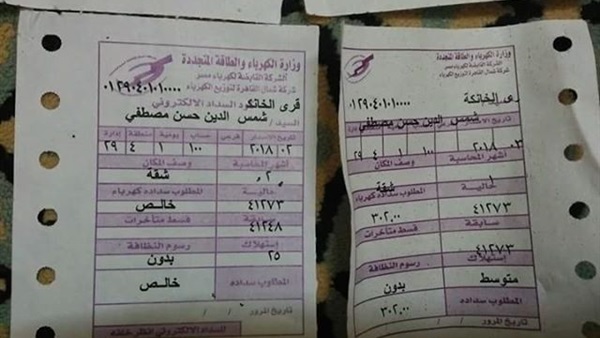 وزارة الكهرباء والطاقة المتجددة
الشركة القابضة لكهرباء مصر
شركة شمال القاهرة لتوزيع الكهرباء
٠١٢٩٠٤٠١٠١٠٠٠٠
قرى الخانكة
كود السداد الالكتروني
شمس الدين حسن مصطفي
السيد/
تاريخ الاصدار فرعي حساب يومية منطقة إدارة
٢٠١٨ ٠٢ ١٠٠ ١ ٤ ٢٩
أشهر المحاسبة وصف المكان
٢ شقة
حالية المطلوب سداده كهرباء
٤١٢٧٣ خالص
سابقة قسط متأخرات
٤١٢٤٨
إستهلاك رسوم النظافة
٢٥ بدون
المطلوب سداده خالص
تاريخ المرور / /
السداد الالكتروني انظر خلفه
وزارة الكهرباء والطاقة المتجددة
الشركة القابضة لكهرباء مصر
شركة شمال القاهرة لتوزيع الكهرباء
٠١٢٩٠٤٠١٠١٠٠٠٠
قرى الخانكة
شمس الدين حسن مصطفي
٢٠١٨ ٠٣ ١٠٠ ١ ٤ ٢٩
أشهر المحاسبة وصف المكان
١ شقة
حالية المطلوب سداده كهرباء
٤١٢٧٣ ٣٠٢,٠٠
سابقة قسط متأخرات
٤١٢٧٣
إستهلاك رسوم النظافة
متوسط بدون
المطلوب سداده ٣٠٢,٠٠
تاريخ المرور / /